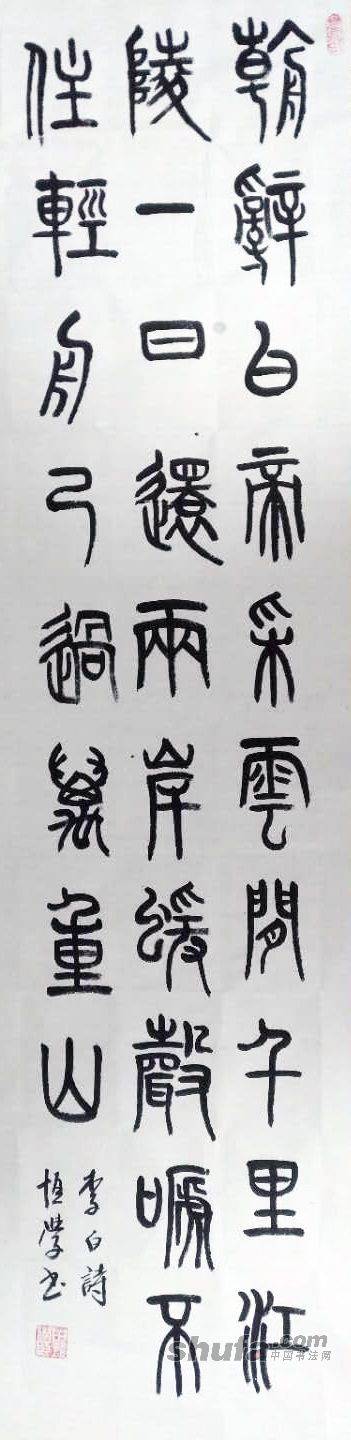 朝辭白帝采雲間千里江
陵一日還兩岸蝯聲嗁不
住輕舟乃過萬重山
李白詩
恒學书
shufa.com
中国书法网